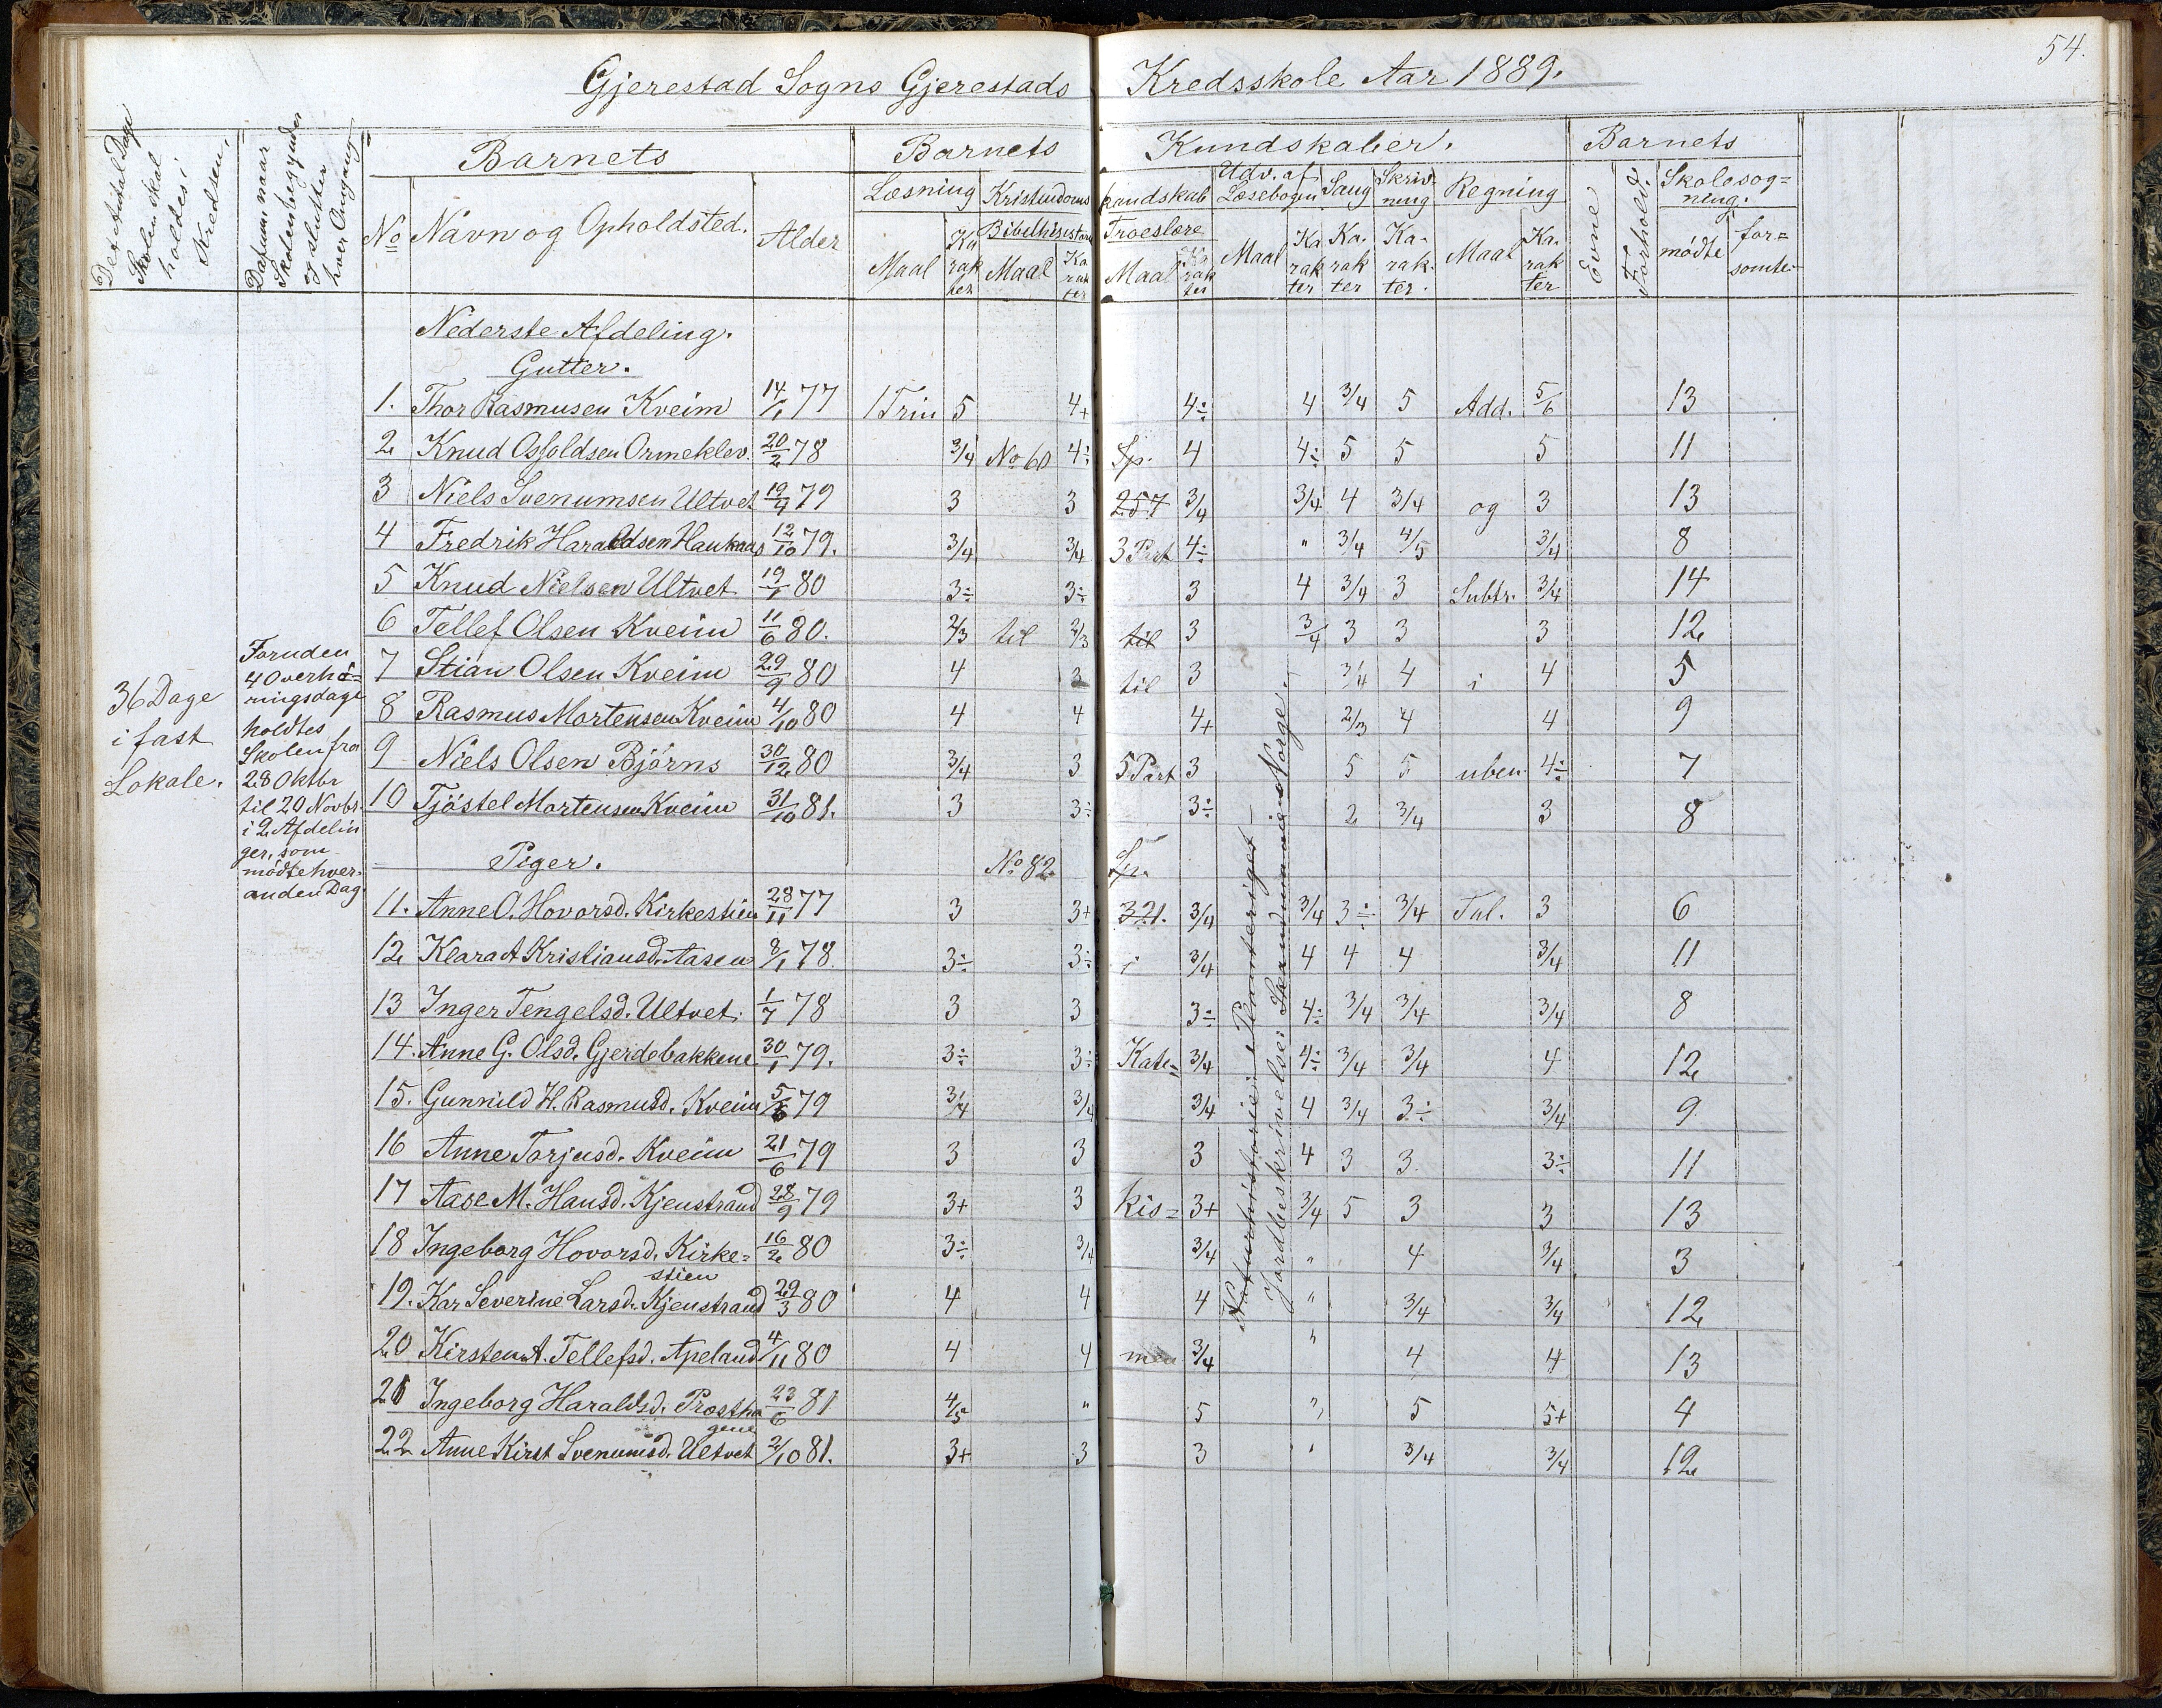 54.
Gjerestad Sogns Gjerestads Kredsskole Aar 1889.
Det Antal Dage Skolen skal holdes i Kredsen.
Datum naar Skolen begynder og slutter hver Omgang
Barnets
No Navn og Opholdsted. Alder
Barnets Kundskaber.
Læsning Kristendoms kundskab Udv. af Læsebogen Sang Skrivning Regning
Bibelhistorie Troeslære
Maal Karakter Maal Karakter Maal Karakter Maal Karakter Karakter Karakter. Maal Karakter
Barnets
Evne Forhold. Skolesøgning.
mødte forsømte
36 Dage
i fast
Lokale.
Foruden
4 Overhø=
ringsdage
holdtes
Skolen fra
28 Oktbr
til 20 Novbr.
i 2 Afdelin
ger, som
mødte hver
anden Dag.
Nederste Afdeling.
Gutter.
1. Thor Rasmusen Kveim 14/1 77 1 Trin 5 4+ 4÷ 4 3/4 5 Add. 5/6 13
2 Knud Osfoldsen Ormeklev. 20/2 78 3/4 No 60 4÷ Sp. 4 4÷ 5 5 5 11
3 Niels Svenumsen Ultvet 19/4 79 3 3 257 3/4 3/4 4 3/4 og 3 13
4 Fredrik Haraldsen Haukaas 12/10 79. 3/4 3/4 3 Part 4÷ " 3/4 4/5 3/4 8
5 Knud Nielsen Ultvet 19/1 80 3÷ 3÷ 3 4 3/4 3 Subtr. 3/4 14
6 Tellef Olsen Kveim 11/6 80. 2/3 til 2/3 til 3 3/4 3 3 3 12
7 Stian Olsen Kveim 29/9 80 4 3 til 3 3/4 4 i 4 5
8 Rasmus Mortensen Kveim 4/10 80 4 4 4+ 2/3 4 4 9
9 Niels Olsen Bjørns 30/12 80 3/4 3 5 Part 3 5 5 uben 4÷ 7
10 Tjøstel Mortensen Kveim 31/10 81. 3 3÷ 3÷ 2 3/4 3 8
Piger. No 82 Sp.
11. Anne O. Hovorsd. Kirkestien 28/11 77 3 3+ 321. 3/4 3/4 3÷ 3/4 Tal. 3 6
12 Klara A Kristiansd. Aasen 8/1 78. 3÷ 3÷ i 3/4 4 4 4 3/4 11
13 Inger Tengelsd. Ultvet. 1/7 78 3 3 3÷ 4÷ 3/4 3/4 3/4 8
14. Anne G. Olsd. Gjerdebakkene 30/1 79. 3÷ 3÷ Kate= 3/4 4÷ 3/4 3/4 4 12
15. Gunnild H. Rasmusd. Kveim 5/6 79 3/4 3/4 3/4 4 3/4 3÷ 3/4 9
16 Anne Torjusd. Kveim 21/6 79 3 3 3 4 3 3. 3÷ 11
17 Aase M. Hansd. Kjenstrand 28/9 79 3+ 3 kis= 3+ 3/4 5 3 3 13
18 Ingeborg Hovorsd. Kirke=stien 16/2 80 3÷ 3/4 3/4 " 4 3/4 3
19. Kar Severine Larsd. Kjenstrand 29/3 80 4 4 4 " 3/4 3/4 12
20 Kirsten A. Tellefsd. Apeland 4/11 80 4 4 men 3/4 " 4 4 13
21 Ingeborg Haraldsd. Prosthagene 23/6 81 4/5 " 5 " 5 5+ 4
22 Anne Kirst Svenumsd. Ultvet 2/10 81. 3+ 3 3 " 3/4 3/4 12
Naturhistorie: Planteriget –
Jordbeskrivelse: Skandinavien Norge.